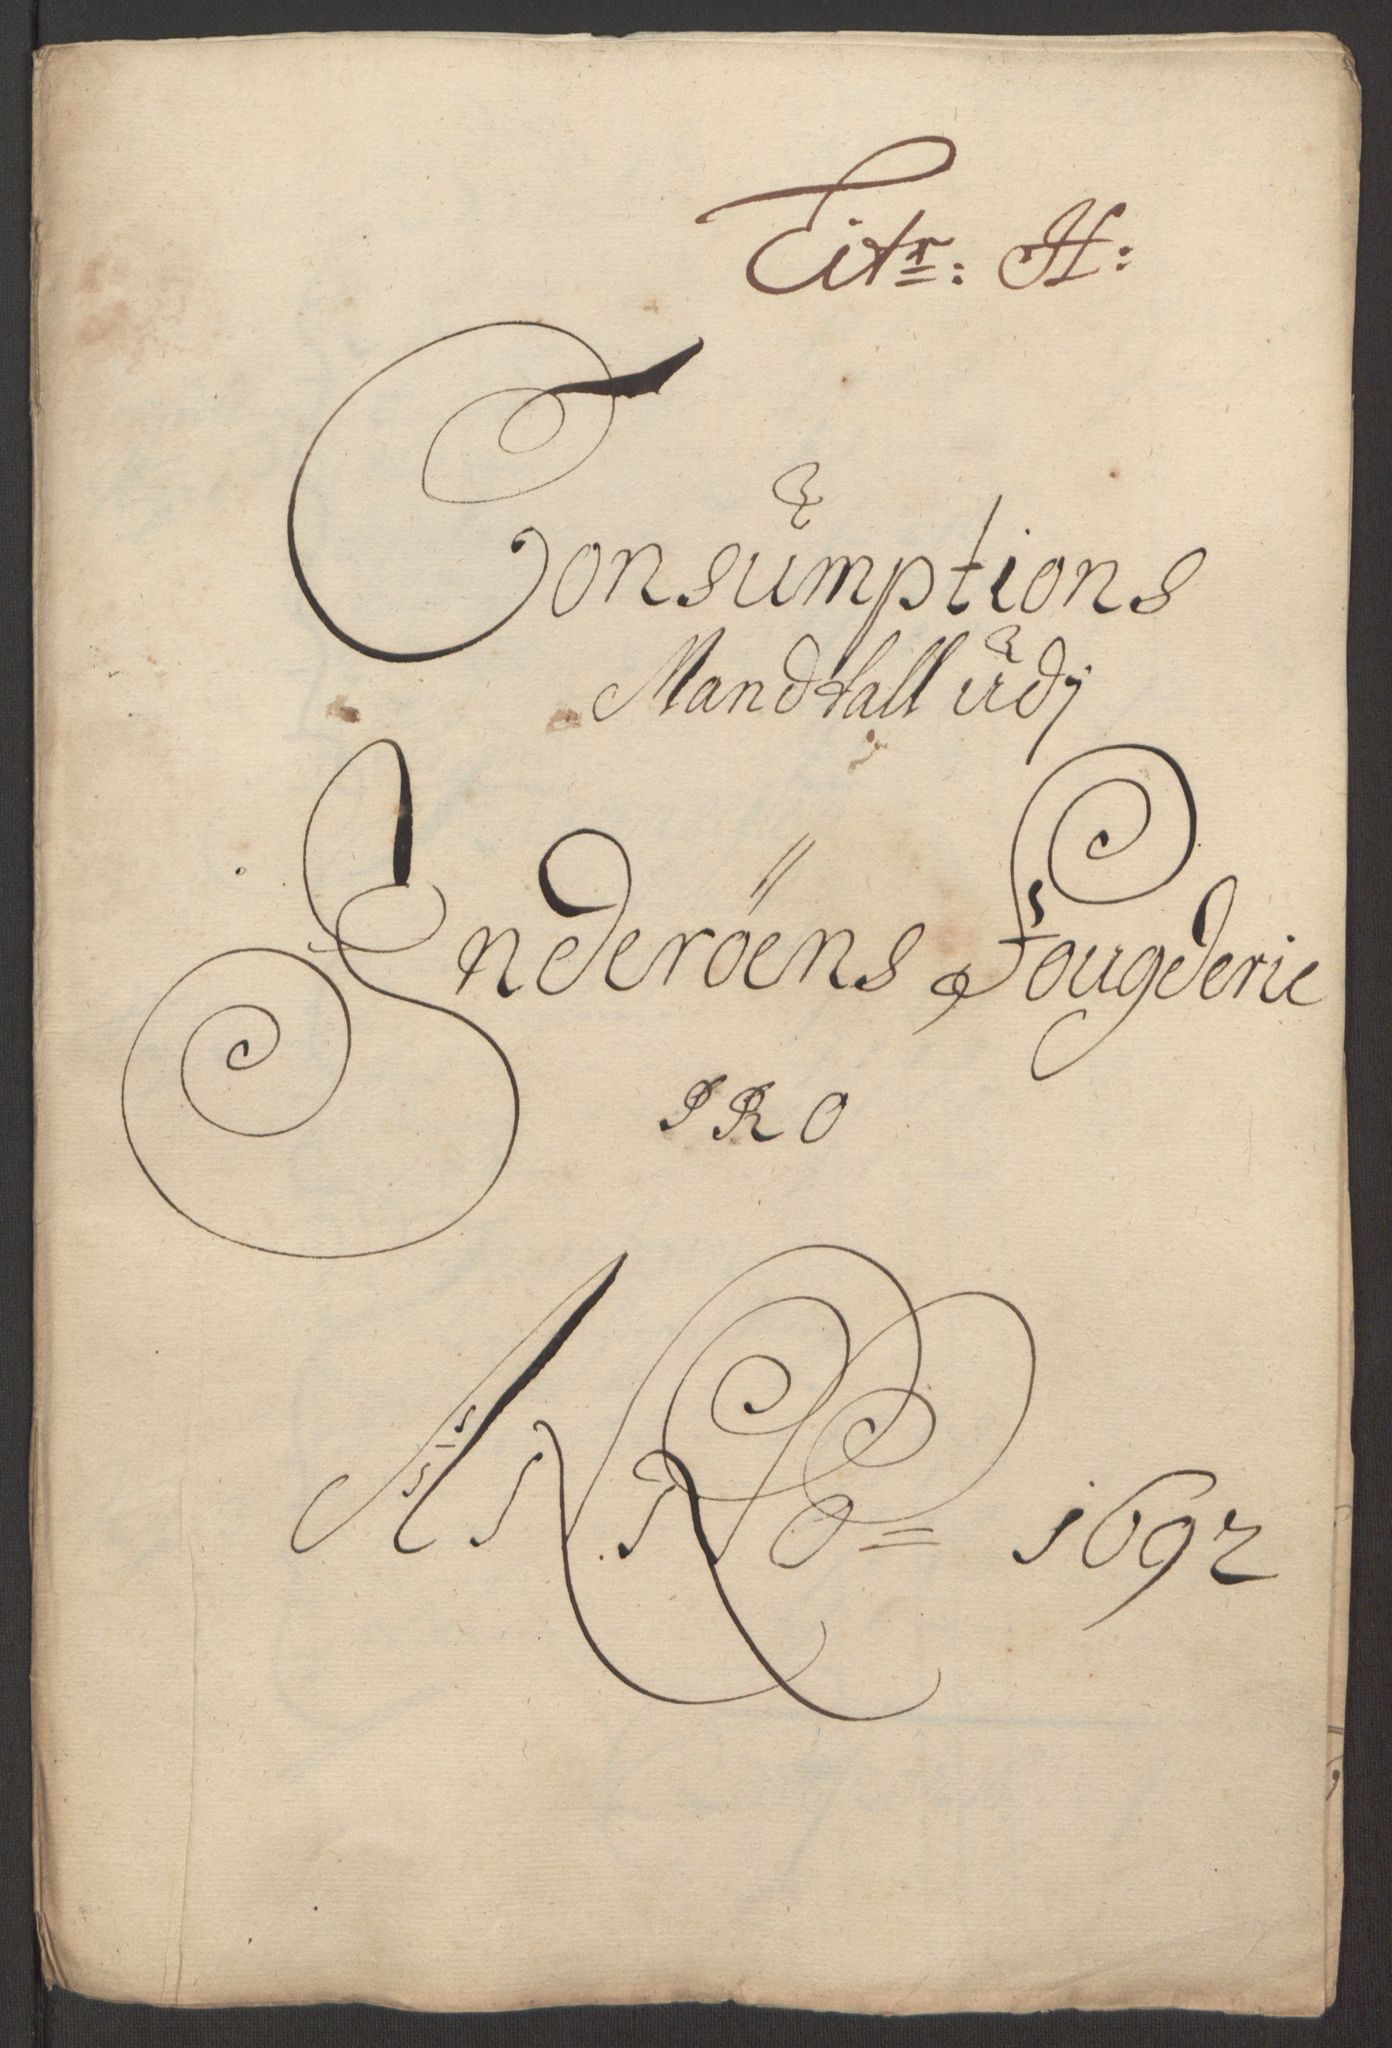 Litr: H:
Consumptions
Mandtall udj
Enderöens Fougderie
PRO
ANNO = 1692